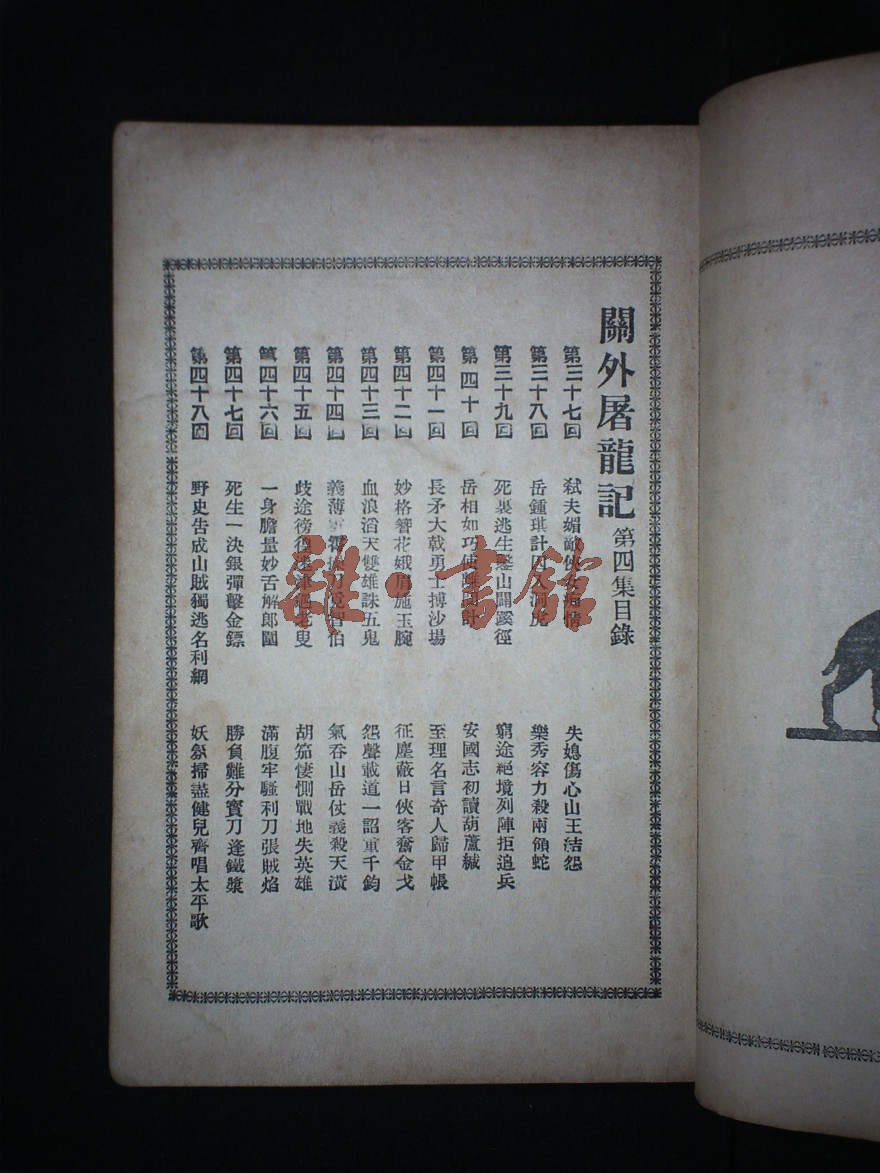 關外屠龍記 第四集目錄
第三十七回 弒夫媚敵俠女 情 失媳傷心山王結怨
第三十八回 岳鍾琪計囚入洞虎 樂秀容力殺兩頭蛇
第三十九回 死裏逃生 山闢蹊徑 窮途絕境列陣拒追兵
第四十回 岳相如巧使 計 安國志初讀葫蘆緘
第四十一回 長矛大戟勇士搏沙場 至理名言奇人歸甲帳
第四十二回 妙格簪花娥眉施玉腕 征塵蔽日俠客奮金戈
第四十三回 血浪滔天雙雄誅五鬼 怨聲載道一詔重千鈞
第四十四回 義薄 刀 智伯 氣吞山岳仗義殺天潢
第四十五回 歧途徬徨迷津遇老叟 胡笳悽惻戰地失英雄
第四十六回 一身膽量妙舌解郎圍 滿腹牢騷利刀張賊焰
第四十七回 死生一決銀彈擊金鏢 勝負難分寶刀逢鐵槳
第四十八回 野史告成山賊獨逃名利網 妖氛掃盡健兒齊唱太平歌
雜·書館